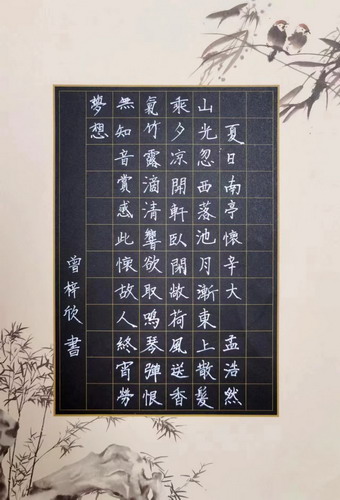 夏日南亭懷辛大 孟浩然
山光忽西落池月漸東上散髮
乘夕凉開軒臥閑敞荷風送香
氣竹露滴清響欲取鳴琴彈恨
無知音賞感此懷故人終宵勞
夢想
曾梓欣書